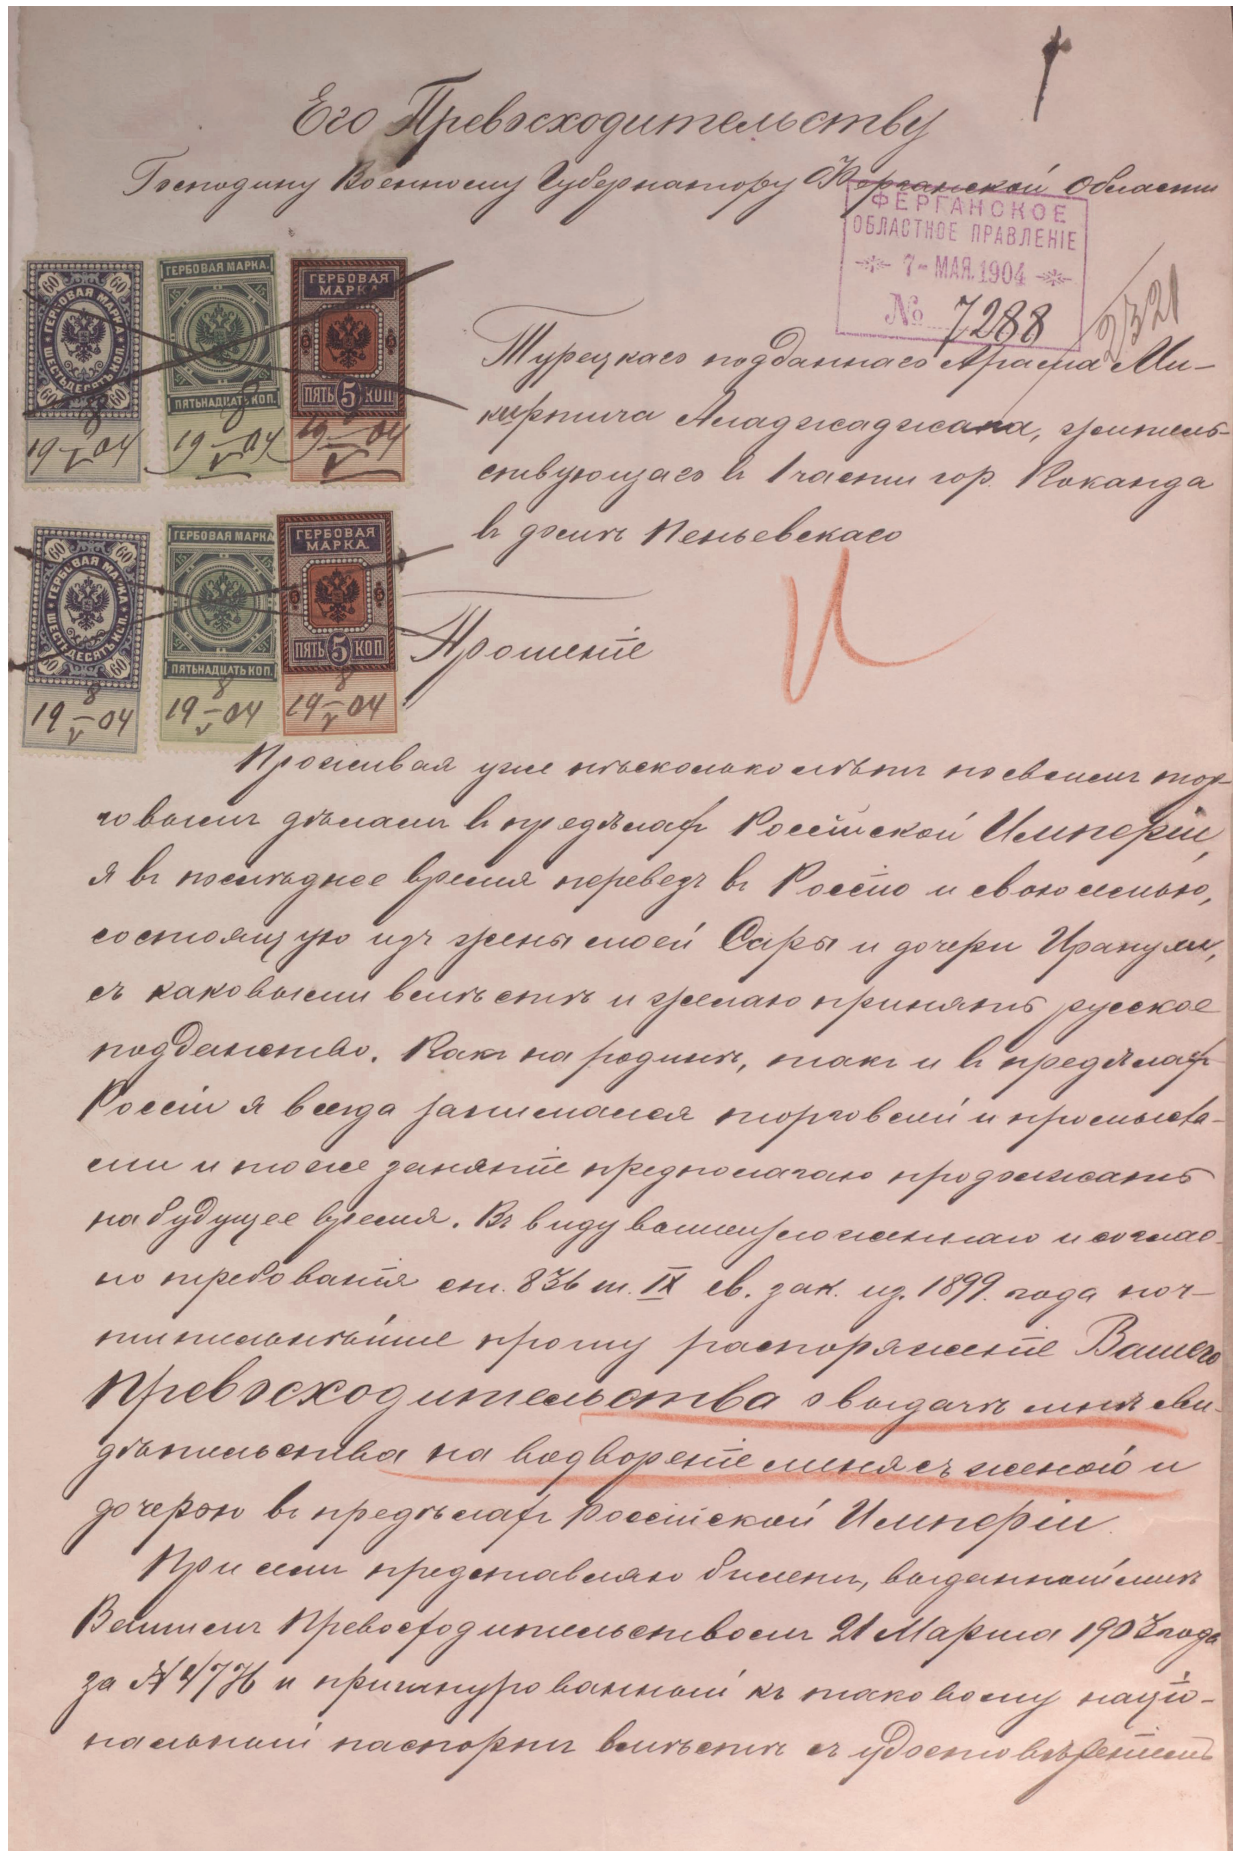 Его Превосходительству
Господину Военному Губернатору Ферганской Области
ФЕРГАНСКОЕ
ОБЛАСТНОЕ ПРАВЛЕНІЕ
7 - МАЯ.1904
№ 7288
2321
ГЕРБОВАЯ МАРКА
ШЕСТЬДЕСЯТЪ КОП.
60 60 60 60
19 8/V 04
ГЕРБОВАЯ МАРКА.
ПЯТНАДЦАТЬ КОП.
19 8/V 04
ГЕРБОВАЯ
МАРКА
ПЯТЬ 5 КОП
19 8/V 04
Турецкаго подданнаго Арама Ми-
киртича Аладжаджана, житель-
ствующаго въ 1 части гор. Коканда
въ домѣ Пеньевскаго
ГЕРБОВАЯ МАРКА
ШЕСТЬДЕСЯТЪ КОП.
60 60 60 60
19 8/V 04
ГЕРБОВАЯ МАРКА
ПЯТНАДЦАТЬ КОП.
19 8/V 04
ГЕРБОВАЯ
МАРКА.
ПЯТЬ 5 КОП
19 8/V 04
Прошеніе
Проживая уже нѣсколько лѣтъ по своимъ тор-
говымъ дѣламъ въ предѣлахъ Россійской Имперіи,
я въ послѣднее время перевезъ въ Россію и свою семью,
состоящую изъ жены моей Сары и дочери
съ каковыми вмѣстѣ и желаю принять русское
подданство. Какъ на родинѣ, такъ и въ предѣлахъ
Россіи я всегда занимался торговлей и промысла-
ми и тоже занятіе предполагаю продолжать
на будущее время. Въ виду вышеизложеннаго и соглас-
но требованія ст. 836 т. IX св. зак. из. 1899. года поч-
тительнѣйше прошу распоряженіе Вашего
Превосходительства о выдачѣ мнѣ сви-
дѣтельства на водвореніе меня съ женой и
дочерью въ предѣлахъ Россійской Имперіи.
При семъ представляю билетъ, выданный мнѣ
Вашимъ Превосходительствомъ 21 Марта 1903 года
за № 4776 и пришнурованный къ таковому націо-
нальный паспортъ вмѣстѣ съ удостовѣреніемъ